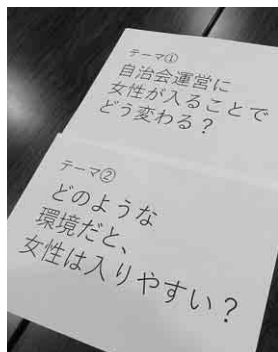 テーマ①
自治会運営に
女性が入ることで
どう変わる？
テーマ②
どのような
環境だと、
女性は入りやすい？